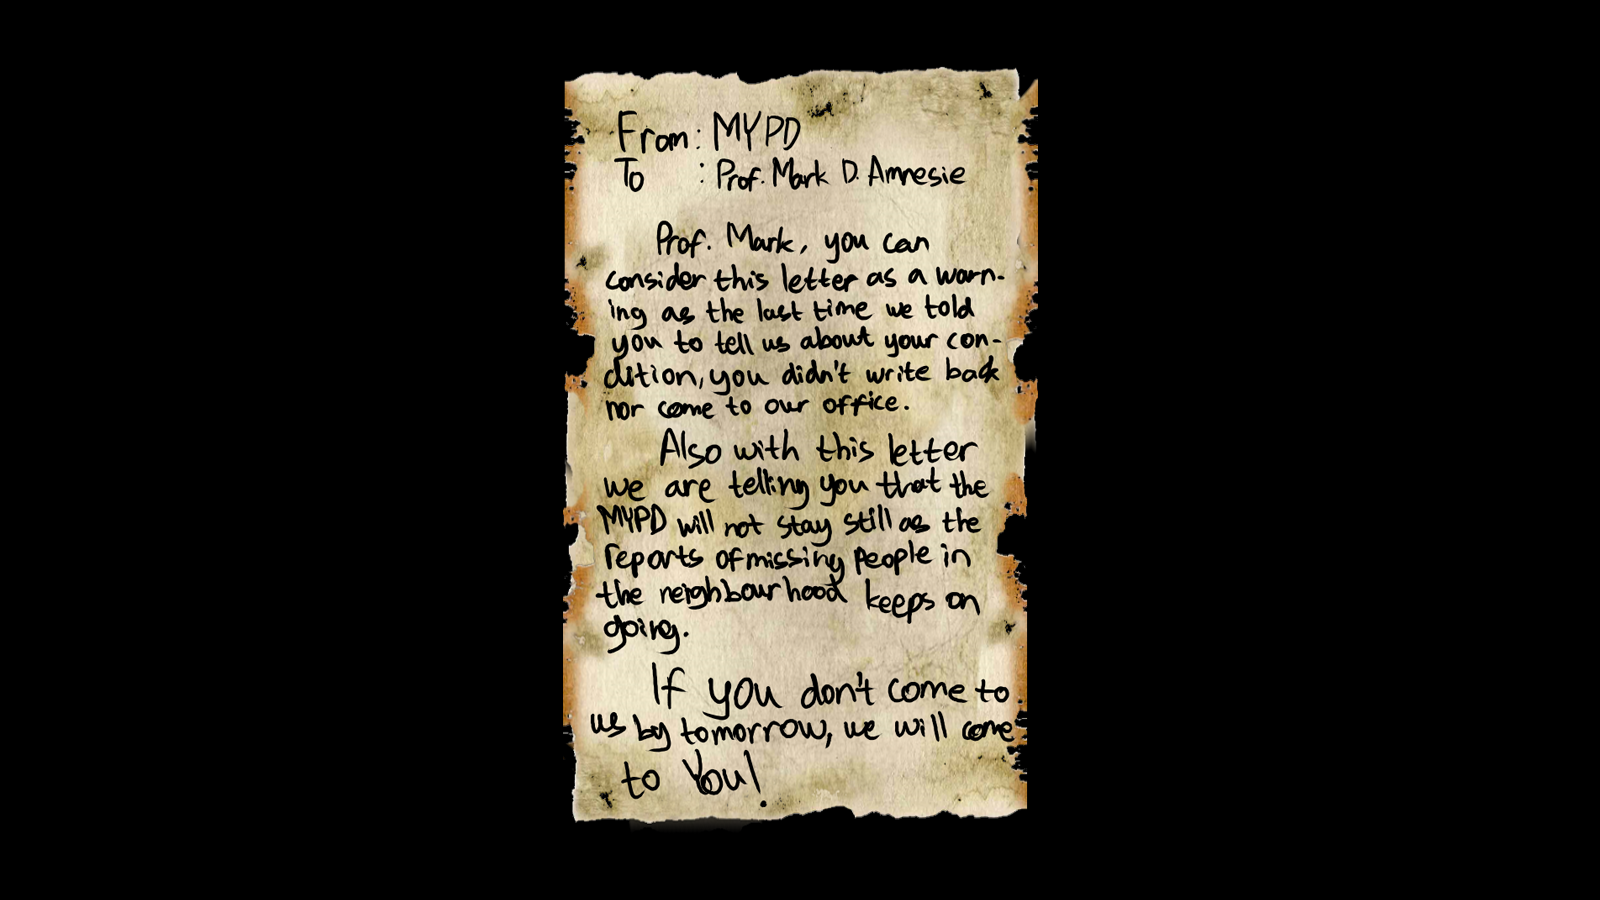 From: MYPD
To : Prof. Mark D. Amnesie
Prof. Mark, you can
consider this letter as a warn-
ing as the last time we told
you to tell us about your con-
dition, you didn't write back
nor come to our office.
Also with this letter
we are telling you that the
MYPD will not stay still as the
reports of missing people in
the neighbourhood keeps on
going.
If you don't come to
us by tomorrow, we will come
to You!